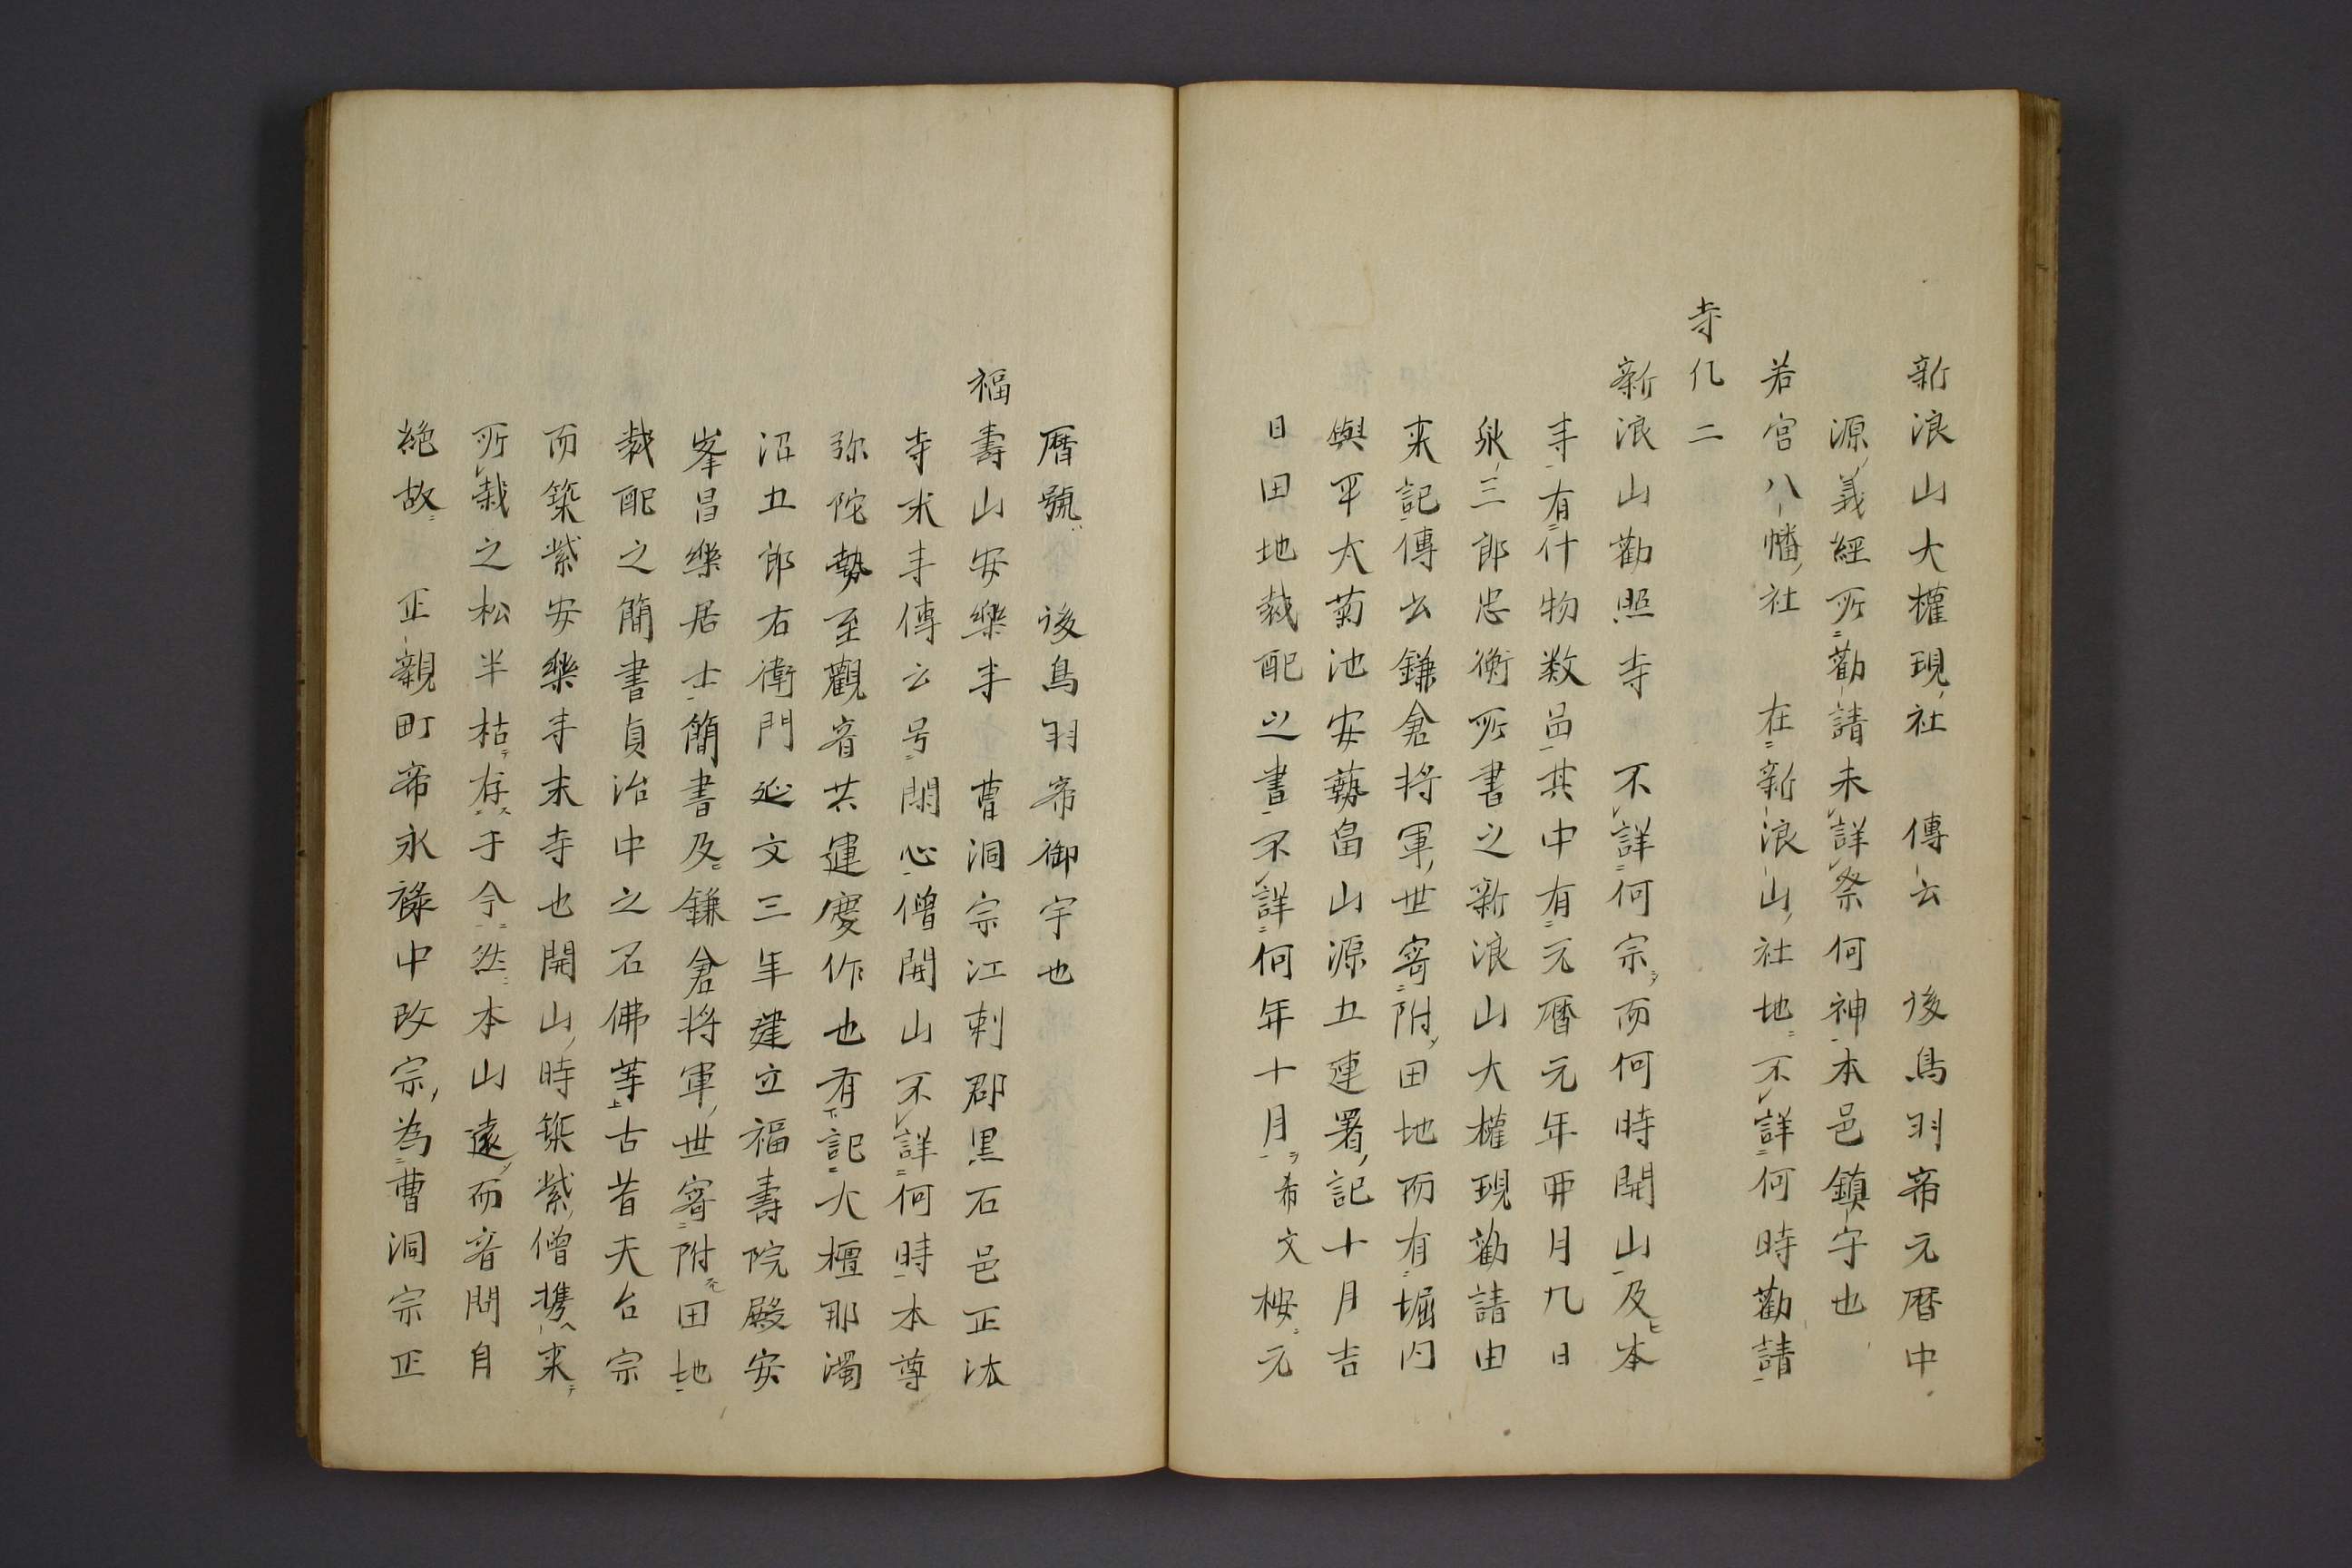 新浪山大權現社　傳云　後鳥羽帝元暦中
源義經所勸請未詳祭何神本邑鎮守也
若宮八幡社　在新浪山社地不詳何時勸請
寺凡二
新浪山勸照寺　不詳何宗而何時開山及本
寺有什物数品其中有元暦元年酉月九日
泉三郎忠衡所書之新浪山大權現勸請由
来記傳云鎌倉将軍世寄附田地而有堀内
與平太菊池安藝畠山源五連署記十月吉
日田地裁配之書不詳何年十月ヲ希文桉元
暦號　後鳥羽帝御宇也
福壽山安樂寺　曹洞宗江刺郡黒石邑正法
寺末寺傳云号閑心僧開山不詳何時本尊
弥陀勢至觀音共運慶作也有記大檀那濁
沼五郎右衛門延文三年建立福壽院殿安
峯昌樂居士簡書及鎌倉将軍世寄附田地
裁配之簡書貞治中之石佛等古昔天台宗
而築紫安樂寺末寺也開山時築紫僧携来
所栽之松半枯存于今然本山遠而音問自
絶故　正親町帝永禄中改宗為曹洞宗正